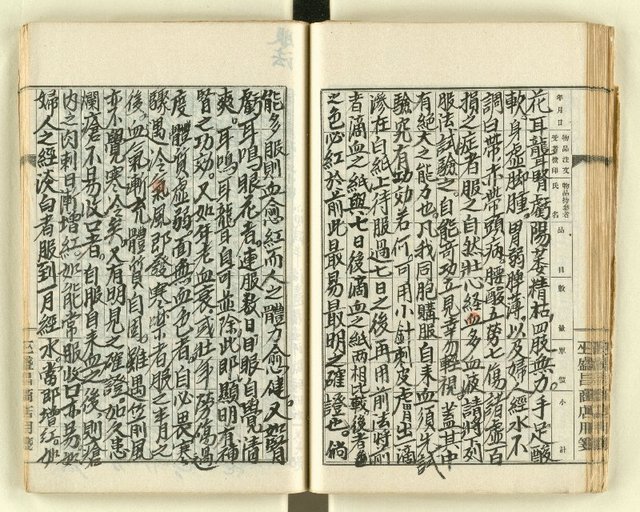 花耳聾腎虧陽萎精枯四股無力手足酸
軟身虛脚腫胃弱脾薄以及婦人經水不
調白帶赤帶頭病腰酸五勞七傷諸虛百
損之症者服之自然壯心經血多血疲請將列
服法試驗之自能奇功立見幸勿輕視蓋其中
有絕大之能力也凡我同胞購服自來血須先試
驗究有功效若何可用小針刺皮膚出一滴
滲在白紙上待服過七日之後再用前法將前
者滴血之紙與七日後滴血之紙兩相比較後者
之色必紅於前此最易最明之確證也倘
能多服則血愈紅而人之體力愈健又如腎
虧耳鳴眼花者連服數日目眼自覺清
爽耳鳴耳聾自可並除此即顯明有種
腎之功效又如年老血衰或壯年傷過
度體質虛弱面無血色者自必畏寒
驟遇冷氣風即發寒噤者服之半月之
後血氣漸充體質自固雖遇竹前風
亦不覺寒冷矣又有明見之確證如久患
爛瘡不易收口者自服自來血之後則瘡
內之肉刺日增紅如能常服收口亦易如
婦人之經淡白者服到一月經水當即增紅如
年月日
物品注文受著檢印
物品持參者氏名
品目
數量
單價
小計
巫盛昌商店用箋
巫盛昌商店用箋